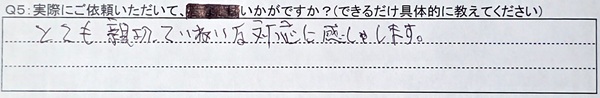 Q5：実際にご依頼いただいて、いかがですか？（できるだけ具体的に教えてください）
とても親切ていねいな対応に感しゃします。